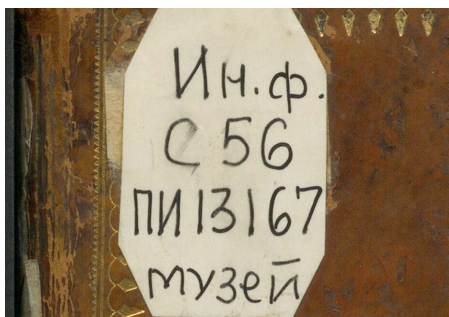 Ин.ф.
С 56
ПИ13167
музей